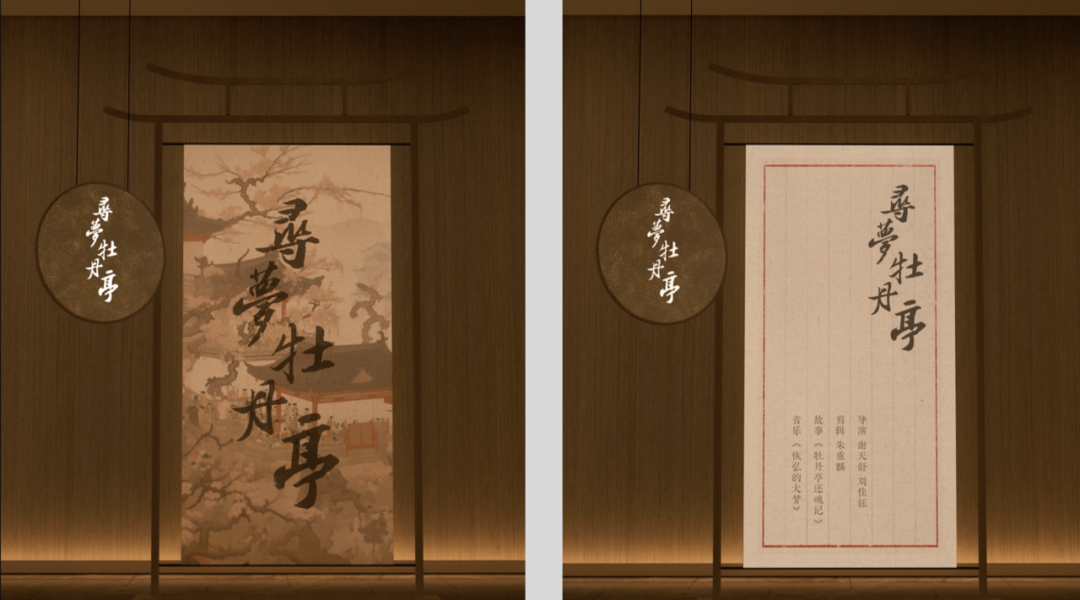 尋夢牡丹亭
尋夢牡丹亭
尋夢牡丹亭
尋夢牡丹亭
导演 谢天舒 刘佳钰
剪辑 朱重麟
故事《牡丹亭还魂记》
音乐《恢弘的大梦》